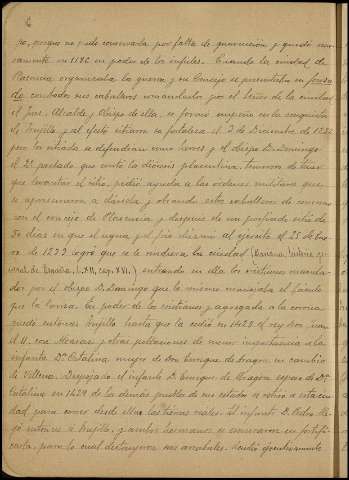 6
jo, porque no pudo conservarla por falta de guarnicion y quedó nue-
vamente en 1196 en poder de los infieles. Cuando la ciudad de
Plasencia organizaba la guerra, y su Concejo se presentaba en fonsa
do contados sus caballeros comandados por el Señor de la ciudad,
el Juez, Alcalde y Obispo de ella, se formó empeño en la conquista
de Trujillo, y al efecto sitiaron su fortaleza el 2 de Diciembre de 1232
pero los sitiados se defendian como leones y el obispo D. Domingo
el 2º prelado que contó la diócesis placentina, temeroso de tener
que levantar el sitio, pidió ayuda a las ordenes militares que
se apresuraron a darsela, y obrando estos caballeros de comun
con el concejo de Plasencia y despues de un porfiado sitio de
50 dias en que el agua y el frio diezmó al ejército el 25 de Ene-
ro de 1233 logró que se le rindiera la ciudad (Mariana, Historia ge-
neral de España, L. XII, cap. XVI.) entrando en ella los cristianos manda-
dos por el obispo D. Domingo que lo mismo manejaba el báculo
que la lanza. En poder de los cristianos y agregada a la corona
quedó entonces Trujillo hasta que la cedió en 1429 el rey Don Juan
el II, con Alcaraz y otras poblaciones de menor importancia a la
infanta Dª Catalina, mujer de Don Enrique de Aragon, en cambio
de Villena. Despojado el infante D. Enrique de Aragon esposo de Dª
Catalina en 1429 de los demás pueblos de sus estados se retiró a esta ciu-
dad para correr desde ella las tierras reales. El infante D. Pedro lle-
gó entonces a Trujillo, y ambos hermanos se esmeraron en fortifi-
carla, para lo cual destruyeron sus arrabales. Acudió ejecutivamente